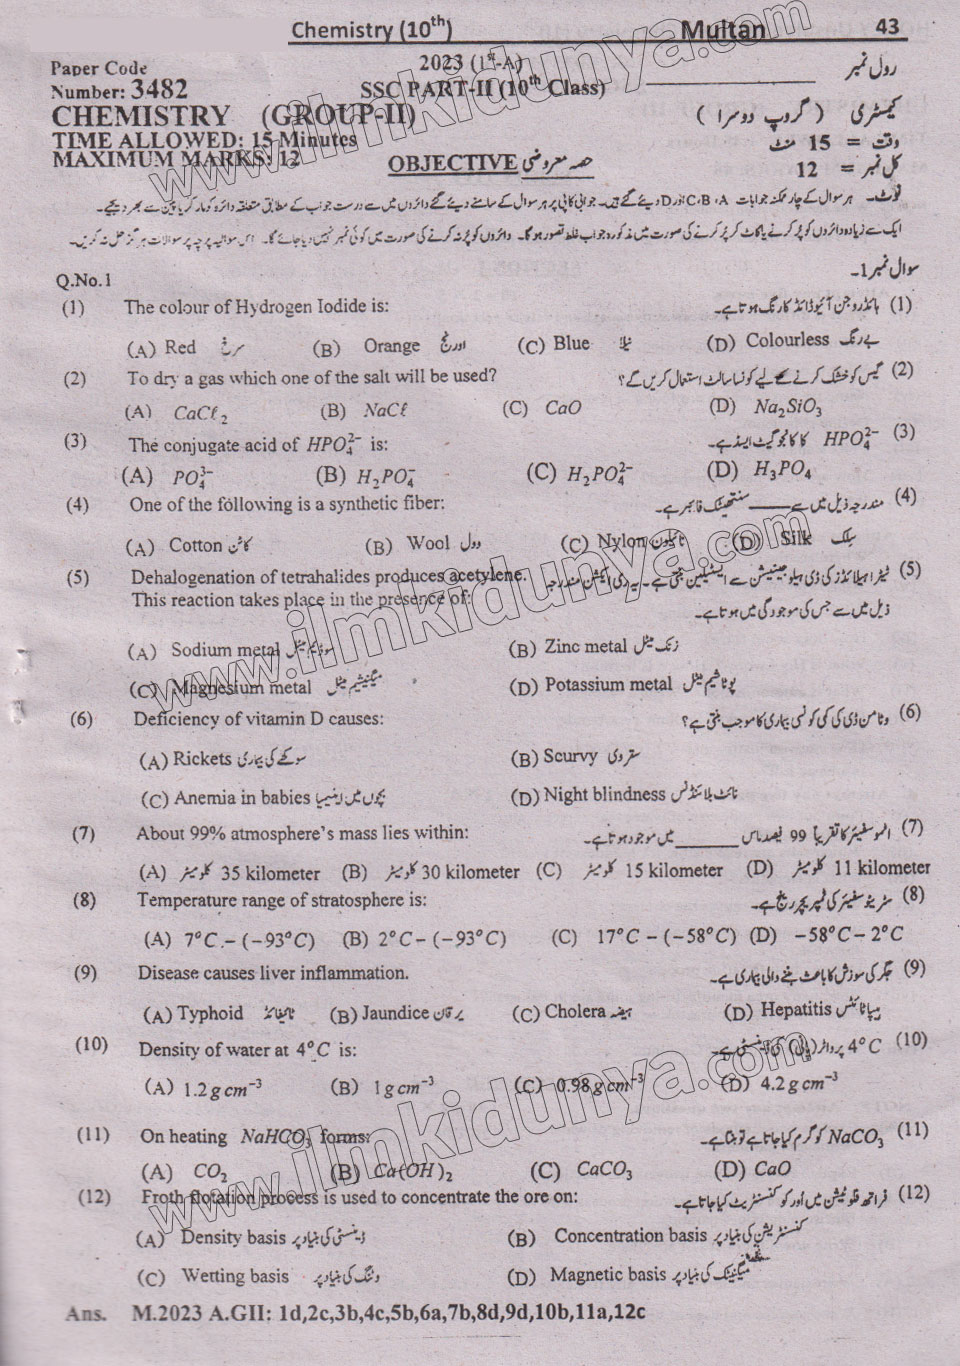 Chemistry (10th) Multan 43
Paper Code 2023 (1st-A) رول نمبر ____________
Number: 3482 SSC PART-II (10th Class)
CHEMISTRY (GROUP-II) کیمسٹری ( گروپ دوسرا )
TIME ALLOWED: 15 Minutes وقت = 15 منٹ
MAXIMUM MARKS: 12 OBJECTIVE حصہ معروضی کل نمبر = 12
نوٹ۔ ہر سوال کے چار ممکنہ جوابات A، B، C اور D دیئے گئے ہیں۔ جوابی کاپی پر ہر سوال کے سامنے دیئے گئے دائروں میں سے درست جواب کے مطابق متعلقہ دائرہ کو مارکر یا پین سے بھر دیجیے۔
ایک سے زیادہ دائروں کو پُر کرنے یا کاٹ کر پُر کرنے کی صورت میں مذکورہ جواب غلط تصور ہوگا۔ دائروں کو پُر نہ کرنے کی صورت میں کوئی نمبر نہیں دیا جائے گا۔ اس سوالیہ پرچہ پر سوالات ہرگز حل نہ کریں۔
Q.No.1 سوال نمبر 1۔
(1) The colour of Hydrogen Iodide is: ہائڈروجن آئیوڈائڈ کا رنگ ہوتا ہے۔ (1)
(A) Red سرخ (B) Orange اورنج (C) Blue نیلا (D) Colourless بے رنگ
(2) To dry a gas which one of the salt will be used? گیس کو خشک کرنے کے لیے کونسا سالٹ استعمال کریں گے؟ (2)
(A) CaCℓ₂ (B) NaCℓ (C) CaO (D) Na₂SiO₃
(3) The conjugate acid of HPO₄²⁻ is: HPO₄²⁻ کا کانجوگیٹ ایسڈ ہے۔ (3)
(A) PO₄³⁻ (B) H₂PO₄⁻ (C) H₂PO₄²⁻ (D) H₃PO₄
(4) One of the following is a synthetic fiber: مندرجہ ذیل میں سے ______ سنتھیٹک فائبر ہے۔ (4)
(A) Cotton کاٹن (B) Wool وول (C) Nylon نائیلون (D) Silk سلک
(5) Dehalogenation of tetrahalides produces acetylene. ٹیٹرا ہیلائڈز کی ڈی ہیلوجینیشن سے ایسٹیلین بنتی ہے۔ یہ ری ایکشن مندرجہ (5)
This reaction takes place in the presence of: ذیل میں سے جس کی موجودگی میں ہوتا ہے۔
(A) Sodium metal سوڈیم میٹل (B) Zinc metal زنک میٹل
(C) Magnesium metal میگنیشیم میٹل (D) Potassium metal پوٹاشیم میٹل
(6) Deficiency of vitamin D causes: وٹامن ڈی کی کمی کونسی بیماری کا موجب بنتی ہے؟ (6)
(A) Rickets سوکھے کی بیماری (B) Scurvy سکروی
(C) Anemia in babies بچوں میں اینیمیا (D) Night blindness نائٹ بلائنڈنس
(7) About 99% atmosphere's mass lies within: اٹموسفیئر کا تقریباً 99 فیصد ماس ______ میں موجود ہوتا ہے۔ (7)
(A) کلومیٹر 35 kilometer (B) کلومیٹر 30 kilometer (C) کلومیٹر 15 kilometer (D) کلومیٹر 11 kilometer
(8) Temperature range of stratosphere is: سٹریٹوسفیئر کی ٹمپریچر رینج ہے۔ (8)
(A) 7°C - (-93°C) (B) 2°C - (-93°C) (C) 17°C - (-58°C) (D) -58°C - 2°C
(9) Disease causes liver inflammation. جگر کی سوزش کا باعث بننے والی بیماری ہے۔ (9)
(A) Typhoid ٹائیفائڈ (B) Jaundice یرقان (C) Cholera ہیضہ (D) Hepatitis ہیپاٹائٹس
(10) Density of water at 4°C is: 4°C پر واٹر (پانی) کی ڈینسٹی ہے۔ (10)
(A) 1.2 g cm⁻³ (B) 1 g cm⁻³ (C) 0.98 g cm⁻³ (D) 4.2 g cm⁻³
(11) On heating NaHCO₃ forms: NaCO₃ کو گرم کیا جاتا ہے تو بنتا ہے۔ (11)
(A) CO₂ (B) Ca(OH)₂ (C) CaCO₃ (D) CaO
(12) Froth flotation process is used to concentrate the ore on: فراتھ فلوٹیشن میں اور کو کنسنٹریٹ کیا جاتا ہے۔ (12)
(A) Density basis ڈینسٹی کی بنیاد پر (B) Concentration basis کنسنٹریشن کی بنیاد پر
(C) Wetting basis وٹنگ کی بنیاد پر (D) Magnetic basis میگنیٹک کی بنیاد پر
Ans. M.2023 A.GII: 1d,2c,3b,4c,5b,6a,7b,8d,9d,10b,11a,12c
www.ilmkidunya.com
www.ilmkidunya.com
www.ilmkidunya.com